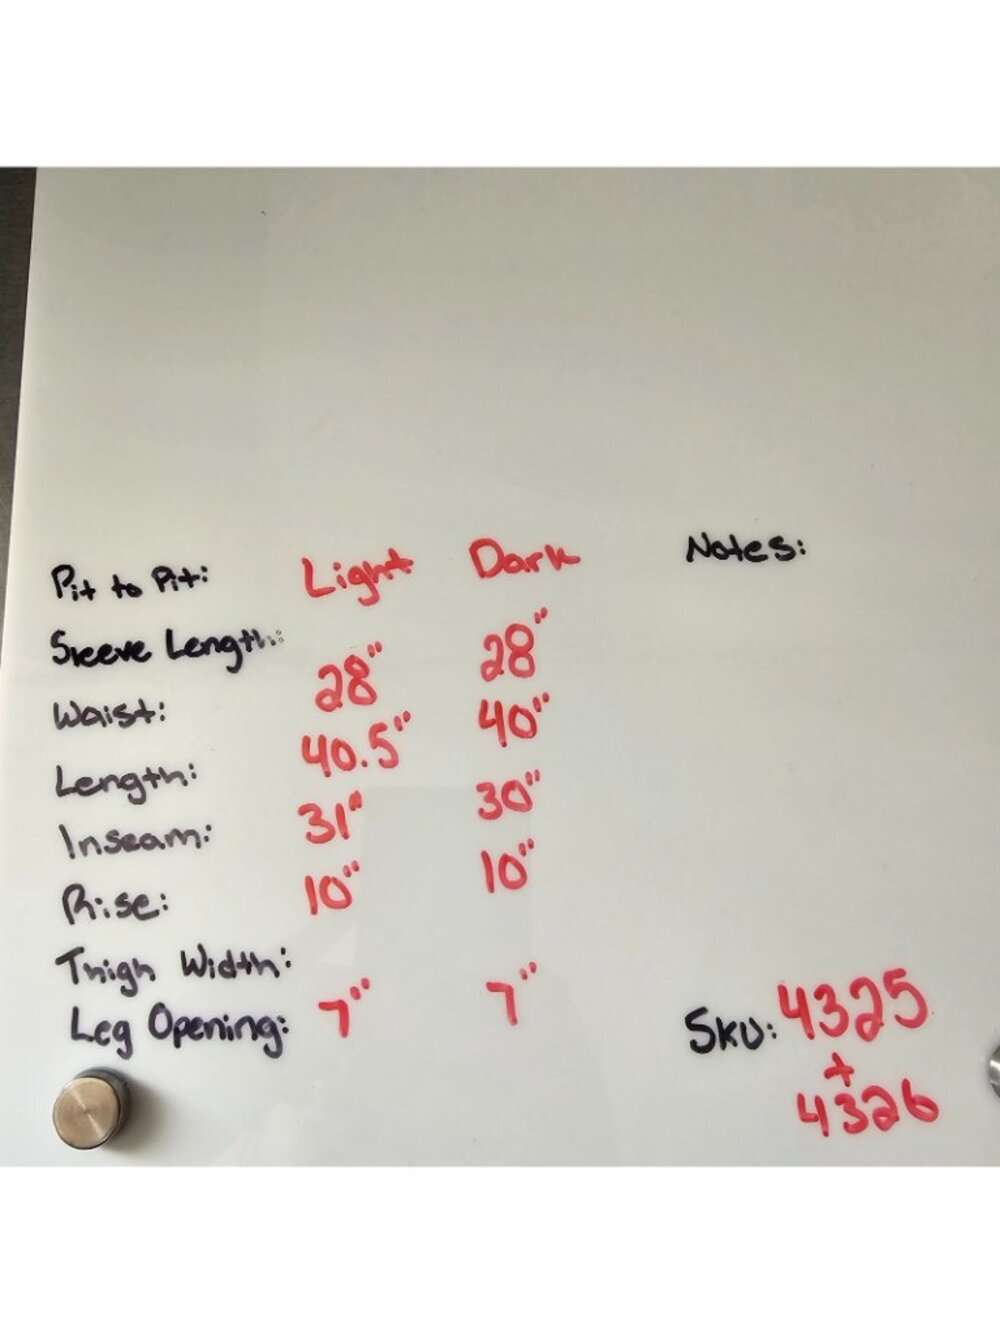 Pit to Pit: Light Dark Notes:
Sleeve Length:
Waist: 28" 28"
Length: 40.5" 40"
Inseam: 31" 30"
Rise: 10" 10"
Thigh Width:
Leg Opening: 7" 7" SKU: 4325
+
4326